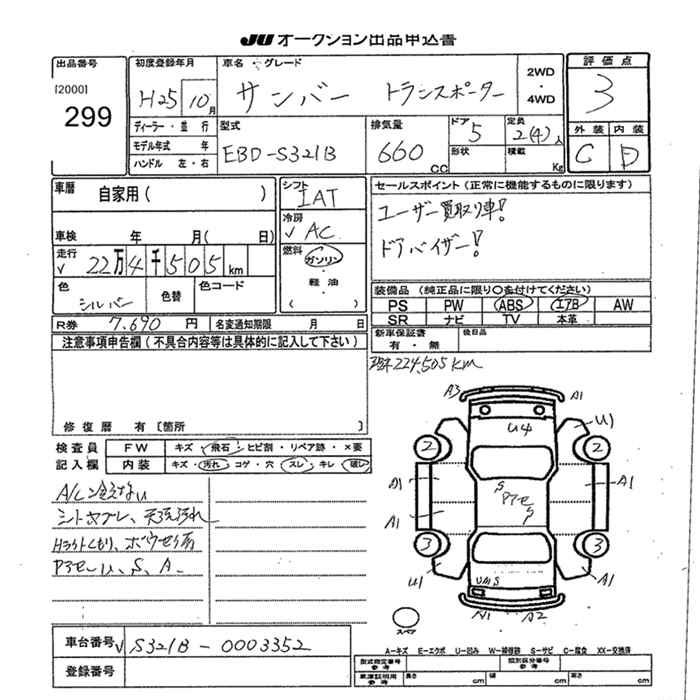 JU オークション出品申込書
出品番号
[2000]
299
初度登録年月
H25 10月
車名・グレード
サンバー トランスポーター
2WD
・
4WD
評価点
3
ディーラー・並行
モデル年式 年
ハンドル 左・右
型式
EBD-S321B
排気量
660 cc
ドア
5
形状
定員
2(4)人
積載
Kg
外装 内装
C D
車暦 自家用( )
車検 年 月( 日)
走行
✓ 22万4千505km
色
シルバー
色替
色コード
R券 7.690 円 名変通知期限 月 日
シフト
IAT
冷房
✓ AC
燃料
ガソリン
・
軽油
・
( )
セールスポイント(正常に機能するものに限ります)
ユーザー買取り車!
ドアバイザー!
装備品(純正品に限り○を付けてください)
PS PW ABS エアB AW
SR ナビ TV 本革
新車保証書
有・無
後日品
224,505km
注意事項申告欄(不具合内容等は具体的に記入して下さい)
修復歴 有〔箇所 〕
検査員
記入欄
FW キズ・飛石・ヒビ割・リペア跡・×要
内装 キズ・汚れ・コゲ・穴・スレ・キレ・破レ
A/C冷えない
シートヤブレ、天張汚れ
Hライトくもり、
Pアセ U、S、A.
A3 A1
U4 U1
2 2
A1 S A1
Pアセ
S
A1 A1
3 3
U1 UMS A1
A1 A2
スペア
A-キズ E-エクボ U-凹み W-補修跡 S-サビ C-腐食 XX-交換済
車台番号 ✓ S321B-0003352
登録番号
型式指定番号
参考
類別区分番号
参考
車庫証明用
参考
長さ cm 幅 cm 高さ cm